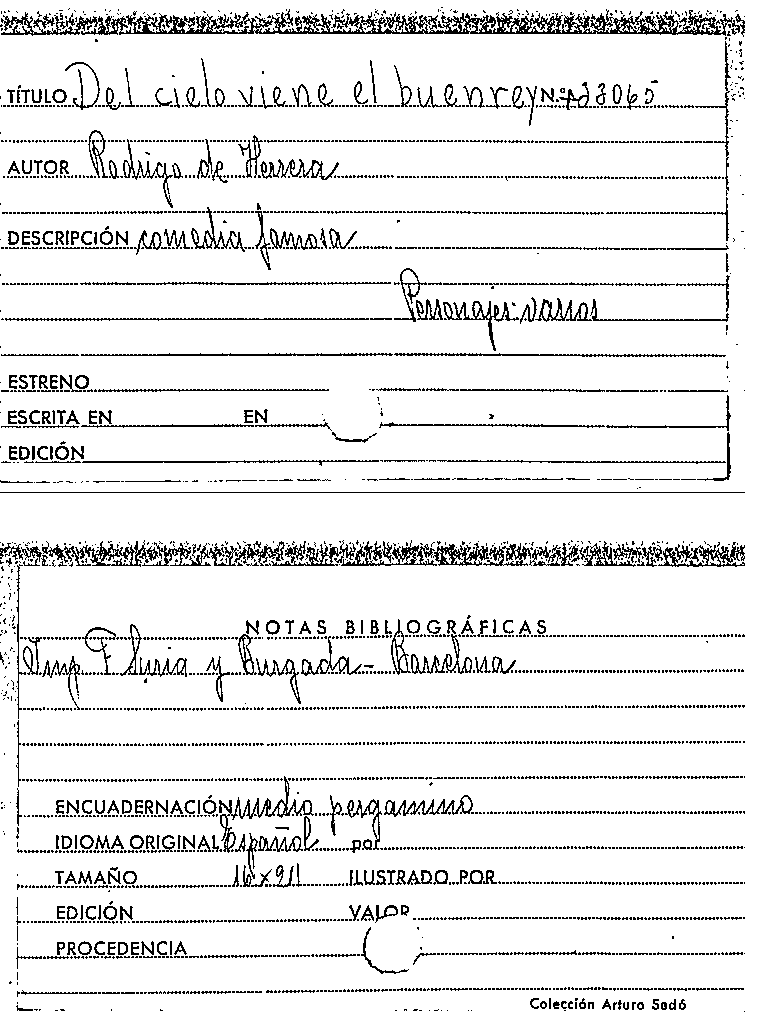 TÍTULO Del cielo viene el buen rey N.º 23065
AUTOR Rodrigo de Herrera
DESCRIPCIÓN comedia famosa
Personajes: varios
ESTRENO
ESCRITA EN EN
EDICIÓN
NOTAS BIBLIOGRÁFICAS
Imp F Suria y Burgada - Barcelona
ENCUADERNACIÓN medio pergamino
IDIOMA ORIGINAL Español por
TAMAÑO ILUSTRADO POR
EDICIÓN VALOR
PROCEDENCIA
Colección Arturo Sedó